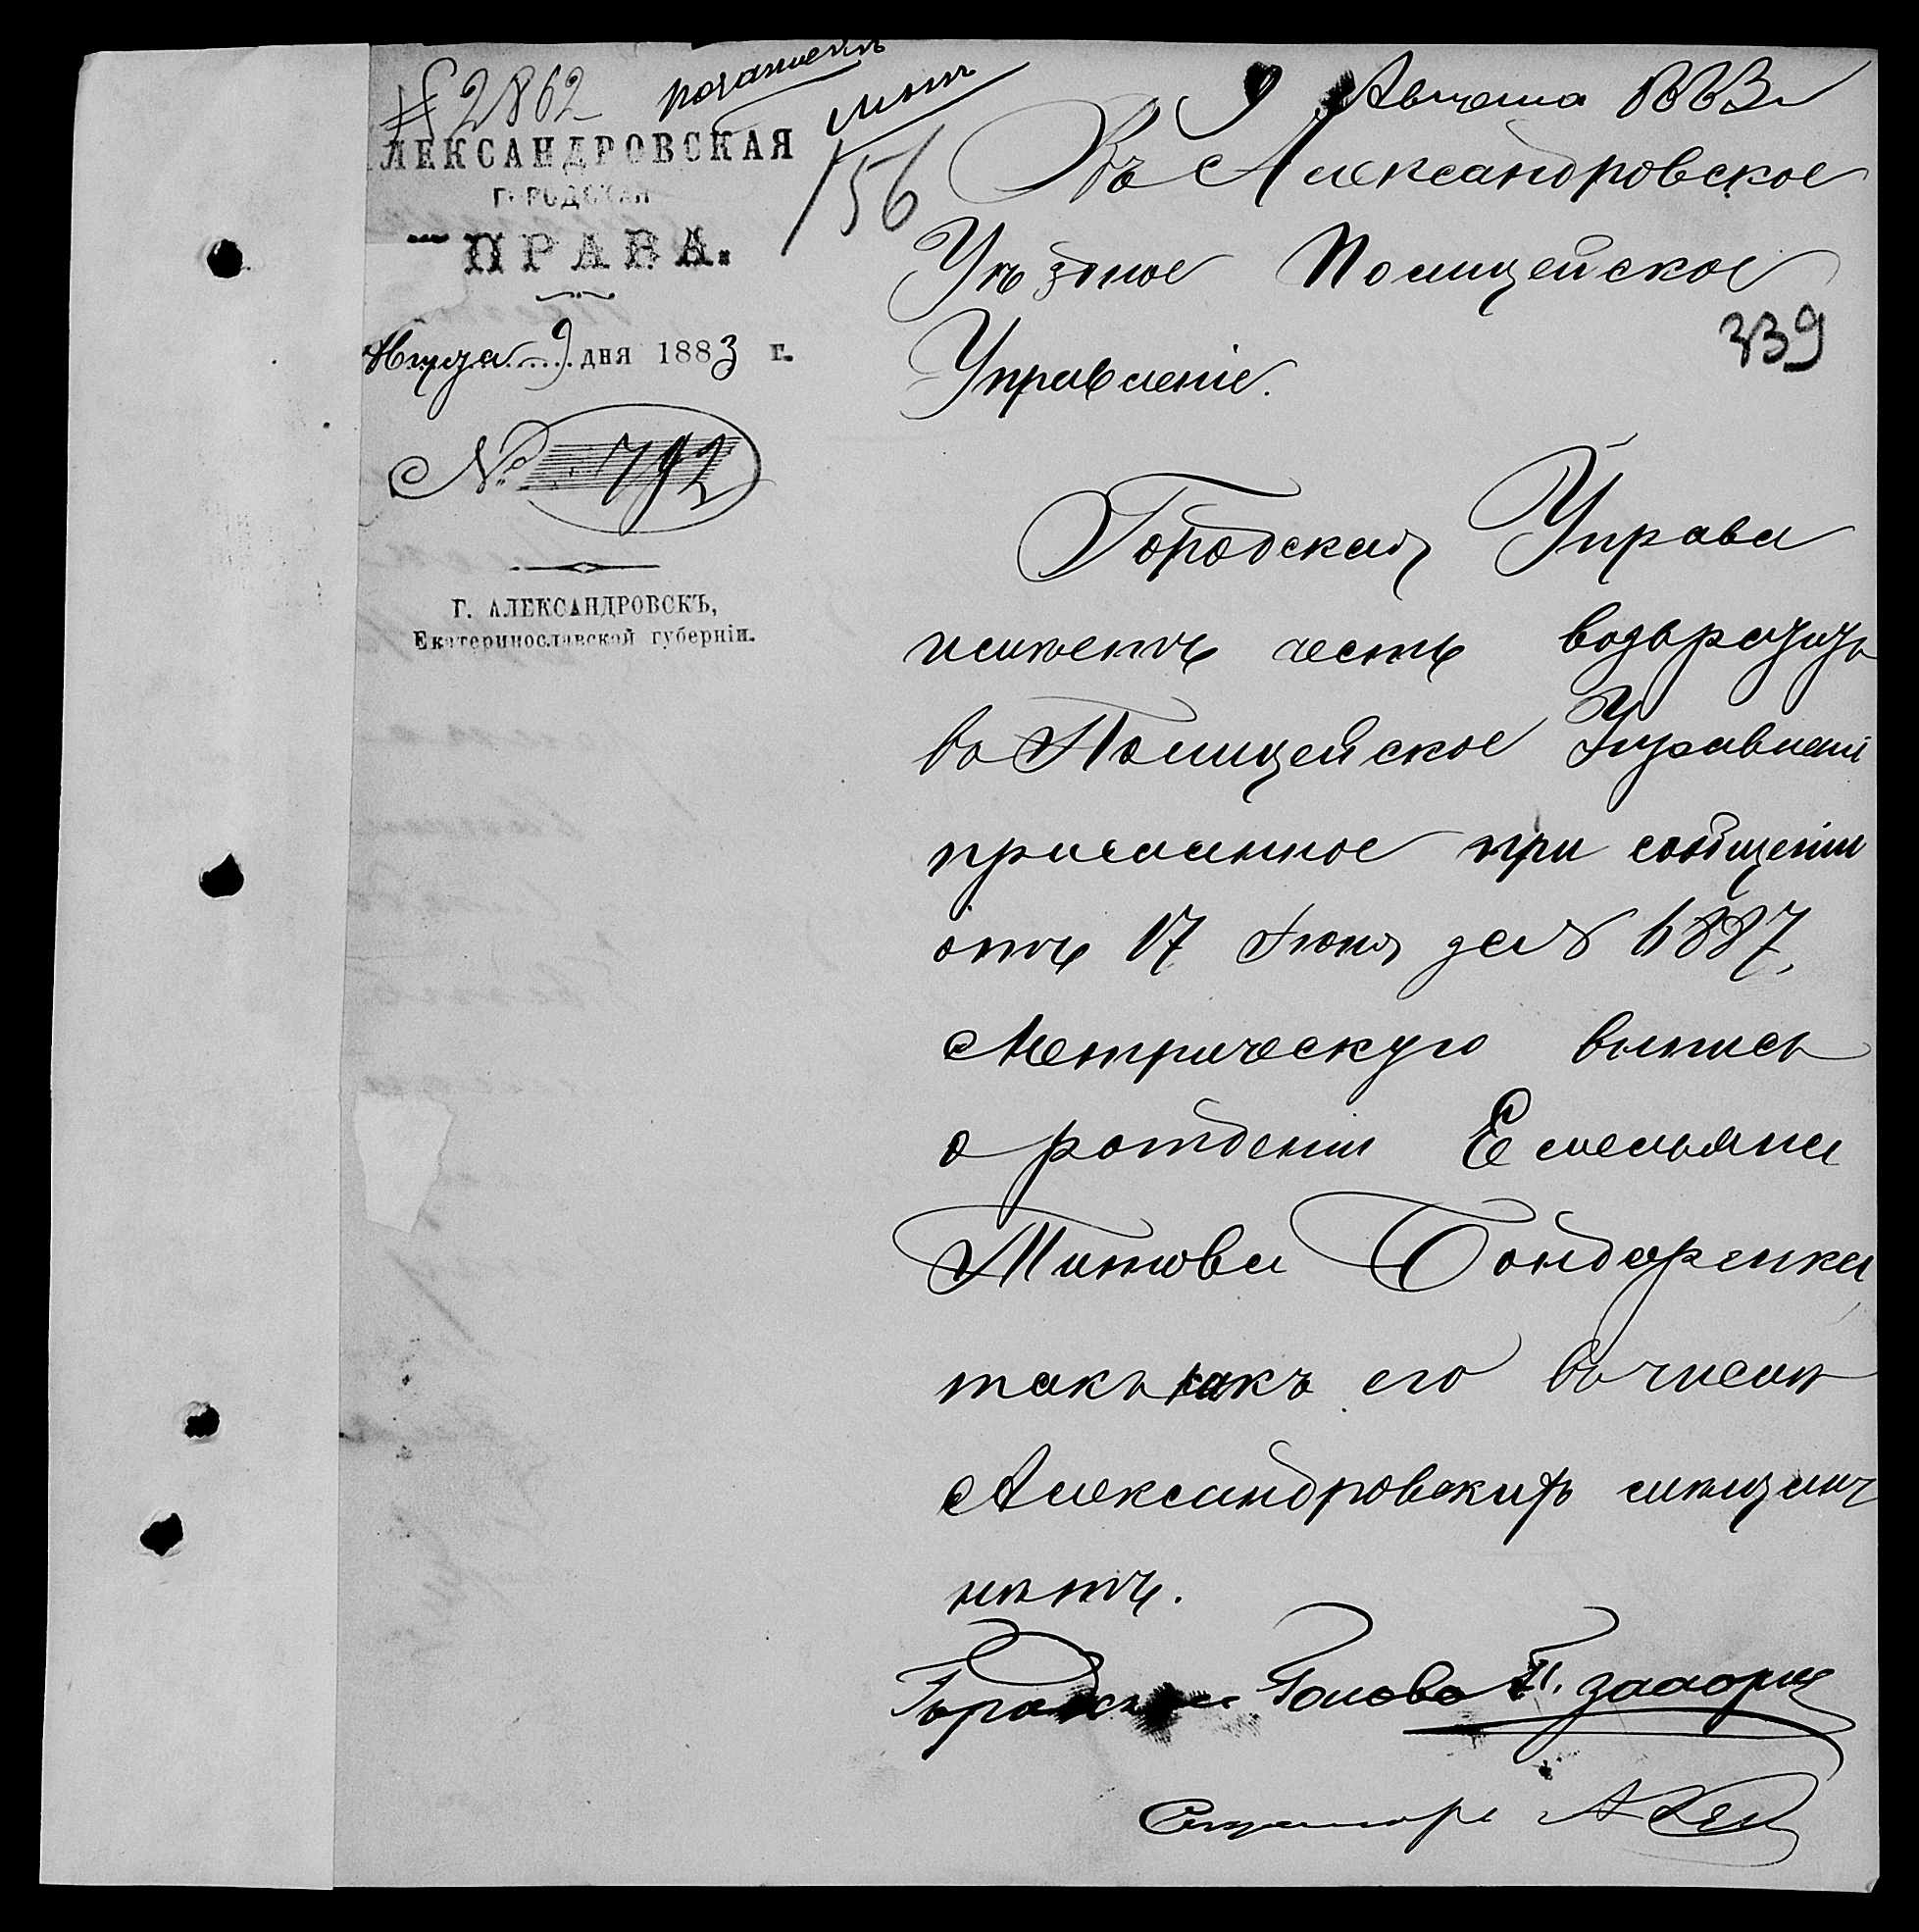 № 2862
156
9 Августа 1883 г
АЛЕКСАНДРОВСКАЯ
ГОРОДСКАЯ
УПРАВА.
Августа 9 дня 1883 г.
№ 792
Г. АЛЕКСАНДРОВСКЪ,
Екатеринославской губерніи.
Въ Александровское
Уѣздное Полицейское
339
Управленіе.
Городская Управа
имѣетъ честь возвратить
въ Полицейское Управленіе
присланное при сообщеніи
отъ 17 Іюня за № 6887,
Метрическую выпись
о рожденіи Емельяна
Титова Бондаренка
такъ какъ его въ числѣ
Александровскихъ мѣщанъ
нѣтъ.
Городской Голова
Секретарь